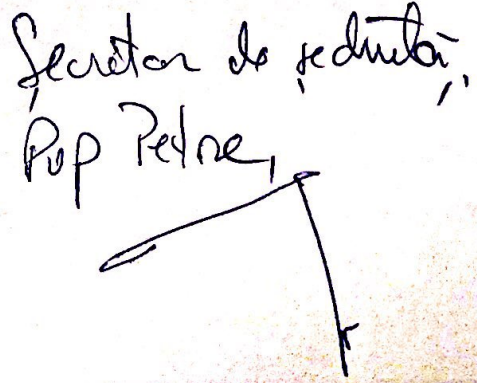 Secretar de ședință,
Pop Petre,